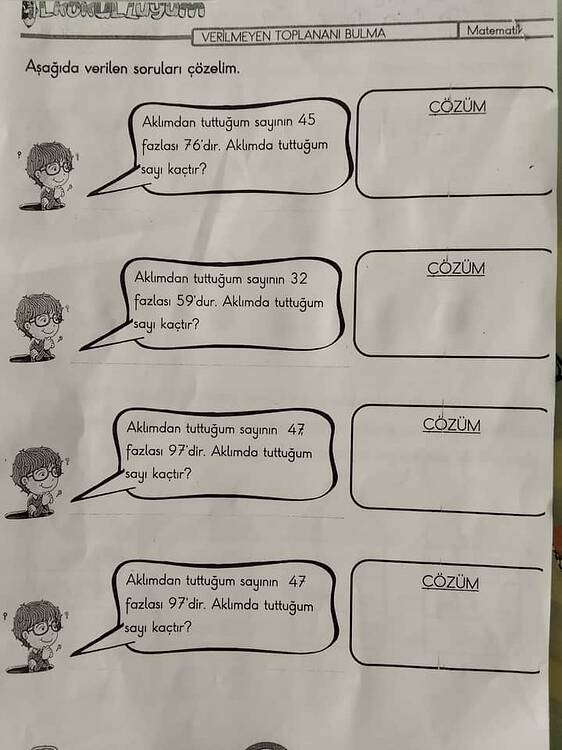 İLKOKULLUYUM
VERİLMEYEN TOPLANANI BULMA
Matematik
Aşağıda verilen soruları çözelim.
Aklımdan tuttuğum sayının 45
fazlası 76'dır. Aklımda tuttuğum
sayı kaçtır?
ÇÖZÜM
Aklımdan tuttuğum sayının 32
fazlası 59'dur. Aklımda tuttuğum
sayı kaçtır?
ÇÖZÜM
Aklımdan tuttuğum sayının 47
fazlası 97'dir. Aklımda tuttuğum
sayı kaçtır?
ÇÖZÜM
Aklımdan tuttuğum sayının 47
fazlası 97'dir. Aklımda tuttuğum
sayı kaçtır?
ÇÖZÜM